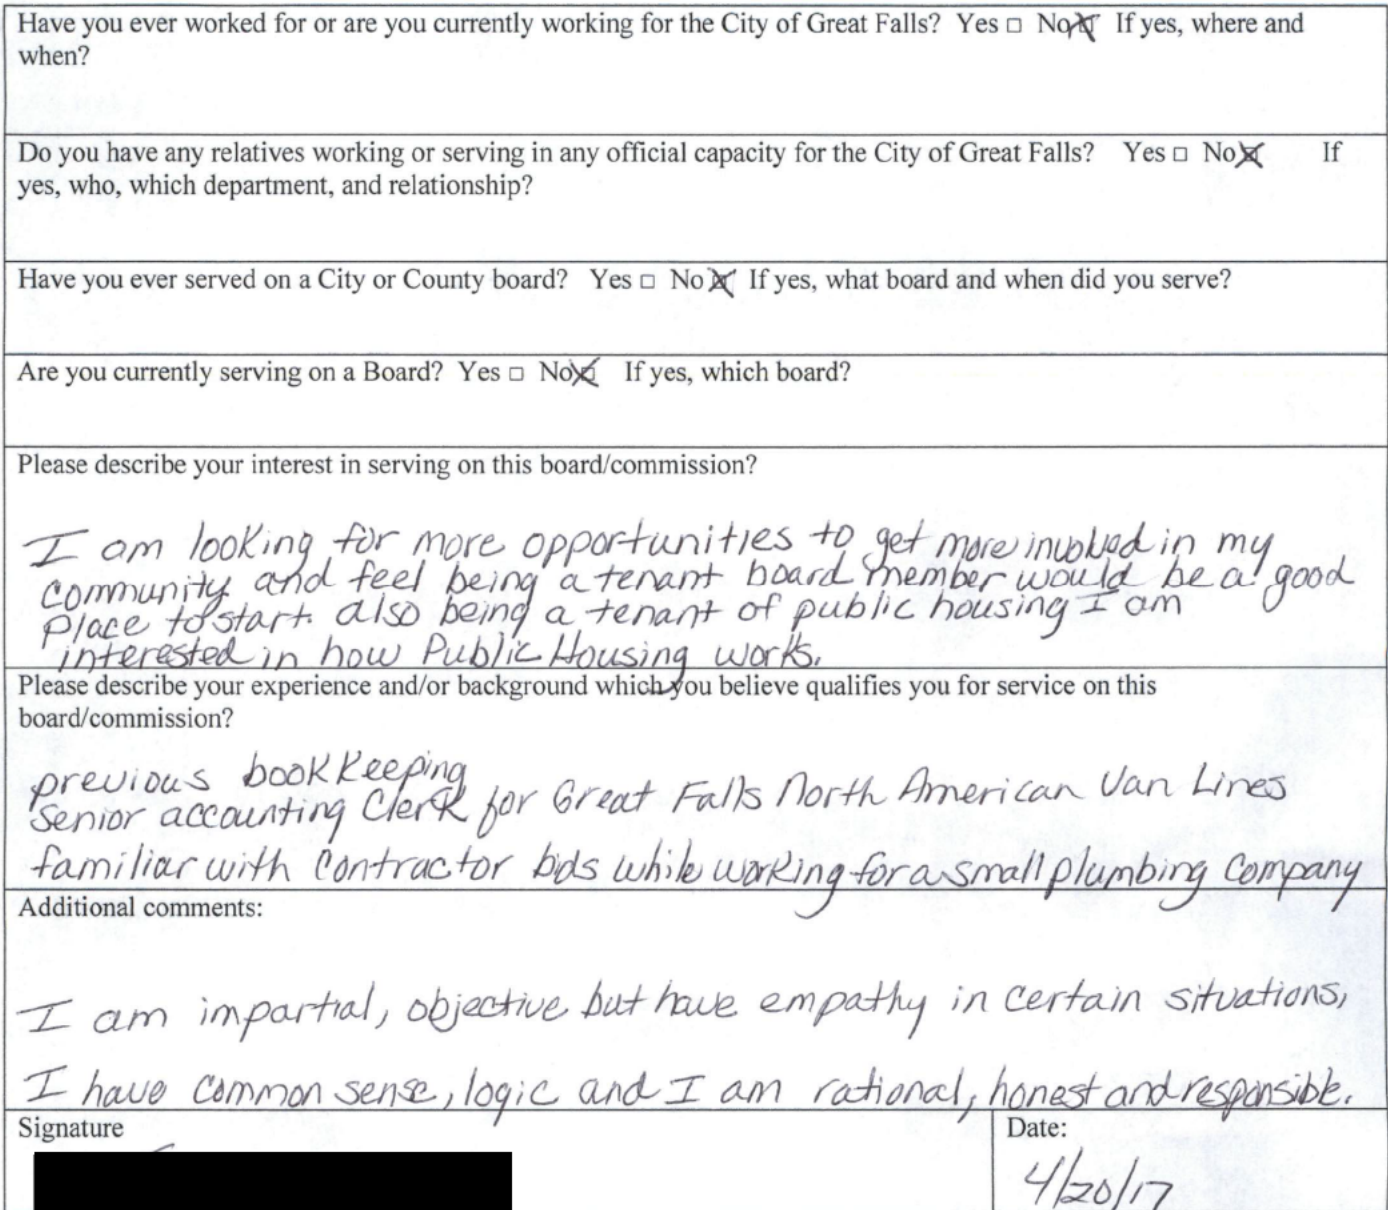 Have you ever worked for or are you currently working for the City of Great Falls? Yes □ No ☒ If yes, where and
when?
Do you have any relatives working or serving in any official capacity for the City of Great Falls? Yes □ No ☒ If
yes, who, which department, and relationship?
Have you ever served on a City or County board? Yes □ No ☒ If yes, what board and when did you serve?
Are you currently serving on a Board? Yes □ No ☒ If yes, which board?
Please describe your interest in serving on this board/commission?
I am looking for more opportunities to get more involved in my
community and feel being a tenant board member would be a good
place to start. also being a tenant of public housing I am
interested in how Public Housing works.
Please describe your experience and/or background which you believe qualifies you for service on this
board/commission?
previous bookkeeping
Senior accounting Clerk for Great Falls North American Van Lines
familiar with contractor bids while working for a small plumbing company
Additional comments:
I am impartial, objective but have empathy in certain situations,
I have common sense, logic and I am rational, honest and responsible.
Signature
Date:
4/20/17